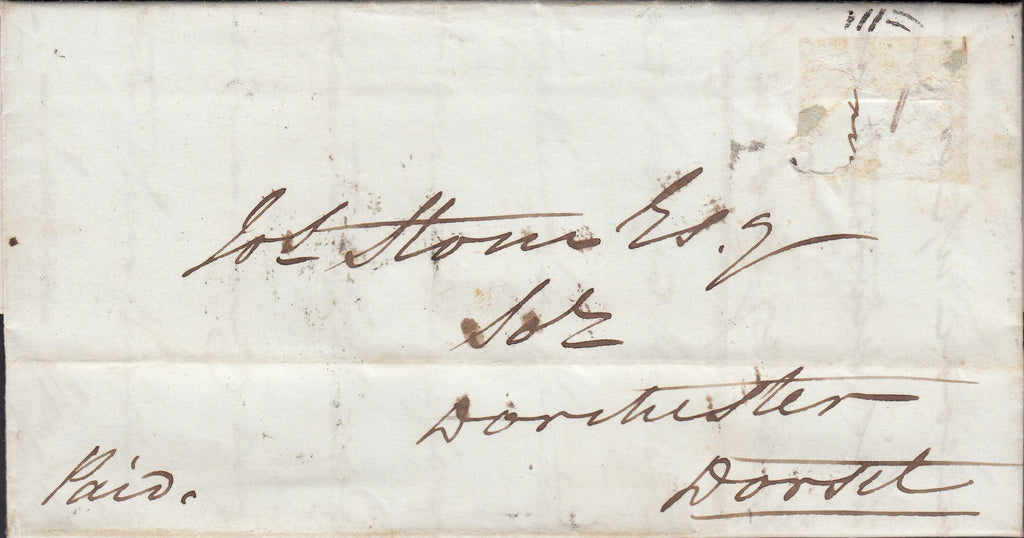 Jos Stone Esq.
Solr
Dorchester
Dorset
Paid.